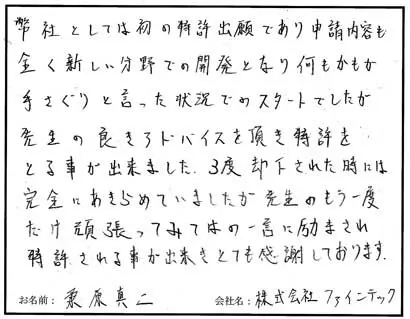 弊社としては初の特許出願であり申請内容も
全く新しい分野での開発となり何もかもが
手さぐりと言った状況でのスタートでしたが
先生の良きアドバイスを頂き特許を
とる事が出来ました。3度却下された時には
完全にあきらめていましたが先生のもう一度
だけ頑張ってみてはの一言に励まされ
特許される事が出来きとても感謝しております。
お名前: 栗原真二 会社名: 株式会社ファインテック